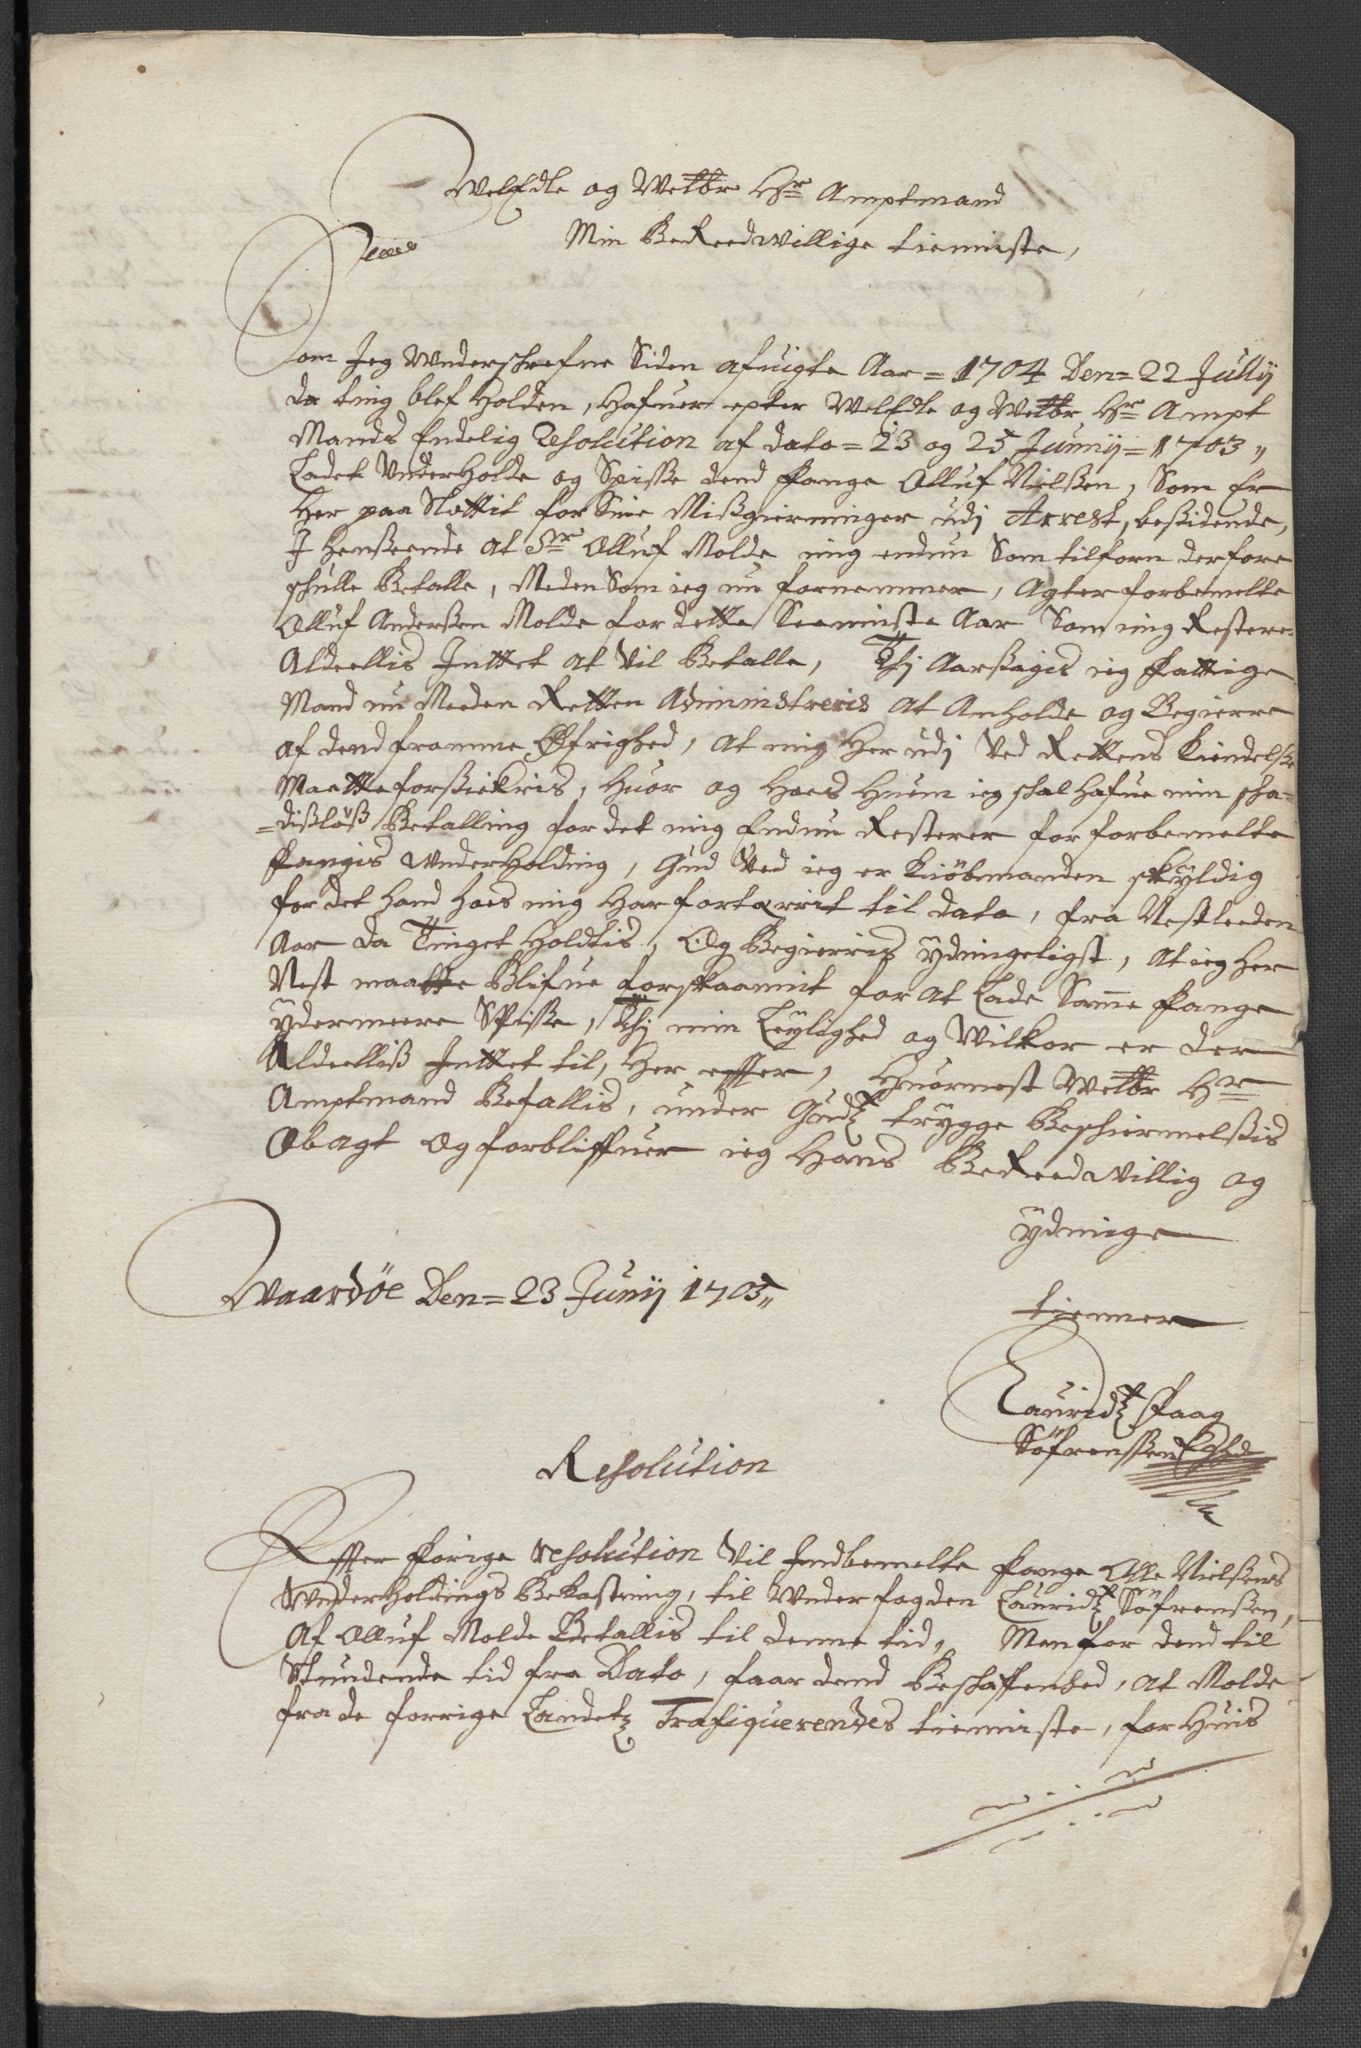 WelEdle og Welbr Hr Amptmand
Min BeReedwillige tienniste,
Som Jeg Underschrefne Siden afuigte Aar = 1704 Den = 22 Jullij
da ting blef Holden, Hafuer epter WelEdle og Welbr Hr Ampt
Mands Endelig Resolution af dato = 23 og 25 Junij = 1703,,
Ladet UnderHolde og Spisse dend Fange Olluf Nielssen, Som Er
Her paa Slottit for Sine Missgierninger udj Arrest, bessidende,
J Henseende at Sr Olluf Molde mig endnu Som tilforn derfore
schulle Betalle, Meden Som ieg nu fornemmer, Agter forbemelte
Olluf Anderssen Molde for dette Seeniste Aar Som mig Resterer
Aldeellis Inttet at Vil Betalle, Thj Aarsagis ieg fattige
Mand nu Meeden Retten Administreris At Anholde og Begierre
af dend fromme Øfrighed, at mig Her udj Ved Rettens Kiendelsse
Maatte forssiekris, Huor og Hoes Huem ieg skal hafue min ska=
=dissløss Betalling for det mig Endnu Resterer for forbemelte
Fangis UnderHolding, Gud Ved ieg er Kiöbmanden skyldig
for det Hand hoes mig Har fortærrit til dato, fra Nestleeden
Aar da Tinget Holdtis, Og Begierris ydmygeligst, at ieg Her
Nest maatte Blifue forskaanit for at Lade Samme Fange
ydermeere Spisse, Thj min Leylighed og Wilkor er der
Aldeelliss Inttet til, Her effter, Huormest Welbr Hr
Amptmand Befallis, under Gudz trygge Beschiermelssis
Obagt Og forbliffuer ieg Hans BeReedwillig og
ydmige
Waardöe Den = 23 Junij 1705,,
tienner
Lauridz Faag
Söfrenssen
Resolution
Effter Forige Resolution Vil Indbemelte Fange Olle Nielssens
UnderHoldings Bekostning, til Underfogden Lauridz Söfrenssen,
Af Olluf Molde Betallis til denne tid,, Men for dend til
Stundende tid fra Dato, faar dend Beskaffenhed, at Molde
fra de forrige Landetz Trafiquerendes tienniste, for Huis